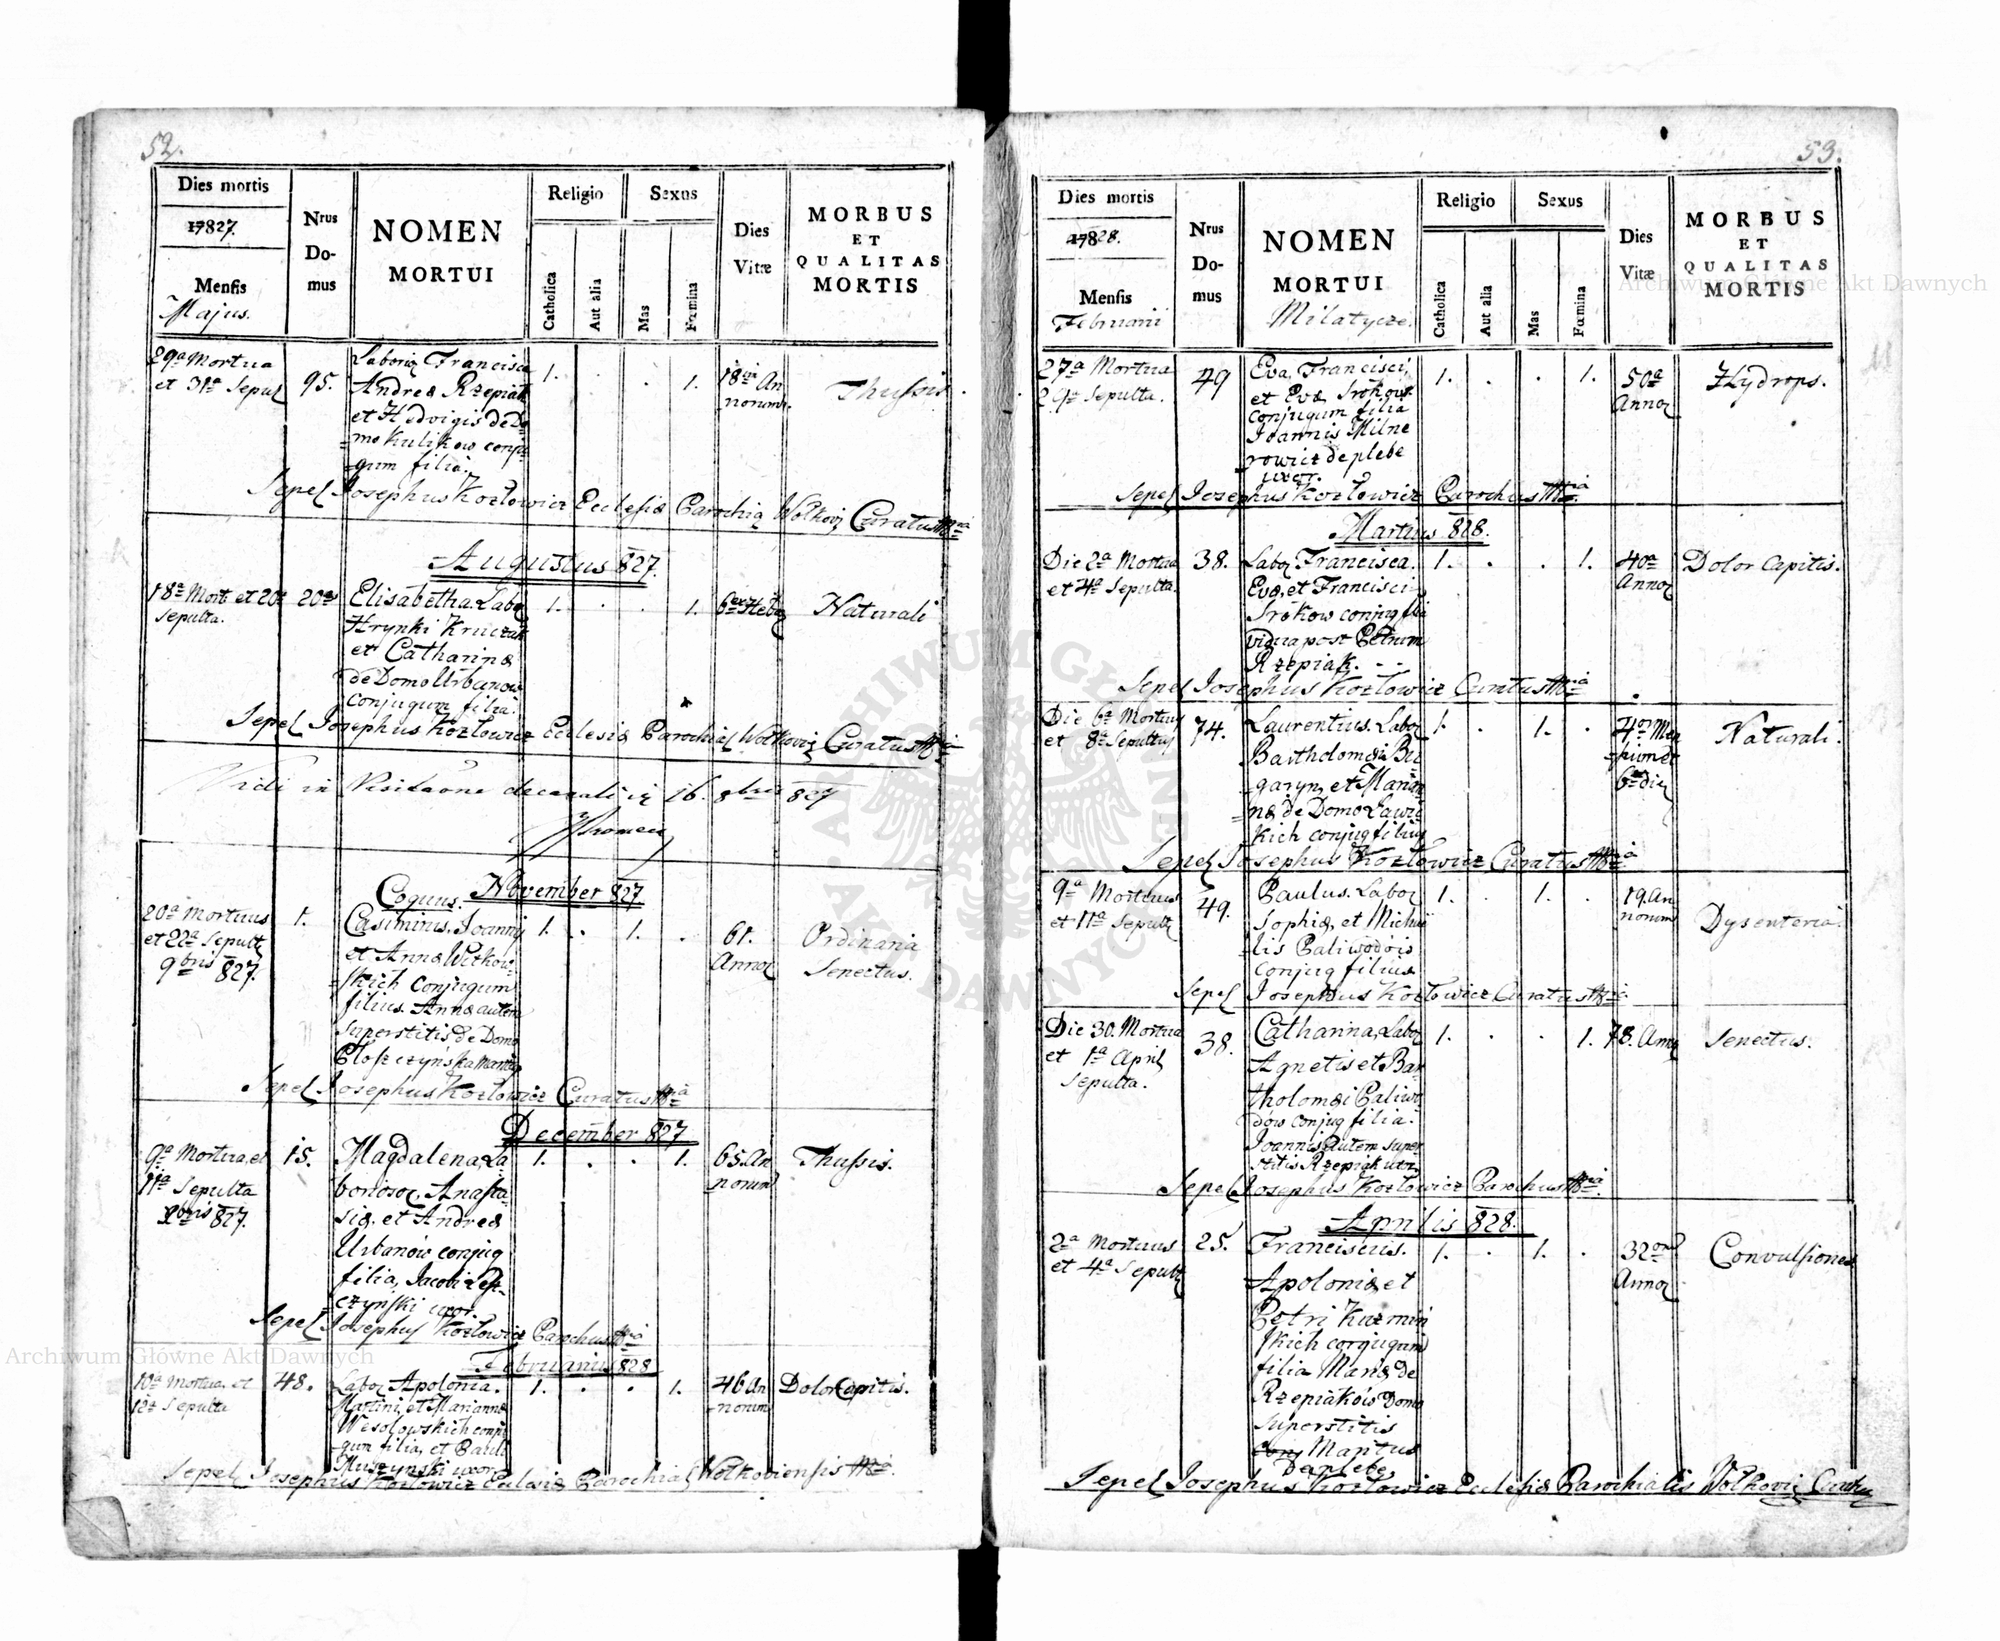 52.
Dies mortis
17827.
Mensis
Majus.
Nrus
Do-
mus
NOMEN
MORTUI
Religio
Catholica
Aut alia
Sexus
Mas
Fœmina
Dies
Vitæ
MORBUS
ET
QUALITAS
MORTIS
29a Mortua
et 31a Sepul
95.
Francisca
Andreæ Rzepiak
et Hedvigis de Do-
mo Kulikow conju-
gum filia.
1. . . 1.
An
norum.
Thussis.
Sepel Josephus Kozłowicz Ecclesiæ Parochia Curatus
Augustus 827.
18a Mort et 20a
sepulta.
20a
Elisabetha Labo
Hrynki Kruczak
et Catharinæ
de Domo Urbanow
conjugum filia.
1. . . 1.
Naturali
Sepel Josephus Kozłowicz Ecclesiæ Parochial Curatus
Vidi in 16. 8bris 827
November 827
20a Mortuus
et 22a Sepult
9bris 827.
1.
Coquus.
Casimirus, Joannis
et Annæ Witkow-
skich conjugum
filius. Annæ autem
superstitis de Domo
1. . 1. .
61.
Anno
Ordinaria
Senectus.
Sepel Josephus Kozłowicz Curatus
December 827
9a Mortua et
11a Sepulta
Xbris 827.
15.
Magdalena La-
borioso, Anasta-
siæ et Andreæ
Urbanów conjug
filia, Jacobi
uxor.
1. . . 1.
65. An
norum
Thussis.
Sepel Josephus Kozłowicz Parochus
Februarius 828
10a Mortua et
12a Sepulta
48.
Labo Apolonia.
Martini et Mariannæ
Wesolowskich conju
gum filia, et Pauli
Muszynski uxor
1. . . 1.
46 An
norum
Dolor Capitis.
Sepel Josephus Kozłowicz Ecclesiæ Parochial Wolkoviensis
53.
Dies mortis
17828.
Mensis
Februarii
Nrus
Do-
mus
NOMEN
MORTUI
Milatycze.
Religio
Catholica
Aut alia
Sexus
Mas
Fœmina
Dies
Vitæ
MORBUS
ET
QUALITAS
MORTIS
27a Mortua
29a Sepulta.
49
Eva, Francisci,
et Evæ Srokow
conjugum filia
Joannis Milne
rowicz de plebe
uxor.
1. . . 1.
50a
Anno
Hydrops.
Sepel Josephus Kozłowicz Parochus
Martius 828.
Die 2a Mortua
et 4a Sepulta.
38.
Labo Francisca.
Evæ, et Francisci
Srokow conjug filia
vidua post Petrum
Rzepiak.
1. . . 1.
40a
Anno
Dolor Capitis.
Sepel Josephus Kozłowicz Curatus
Die 6a Mortuus
et 8a Sepultus
74.
Laurentius. Labo
Bartholomæi Bu
garyn, et Marian
næ de Domo Lawic
kich conjug filius
1. . 1. .
Naturali.
Sepel Josephus Kozłowicz Curatus
9a Mortuus
et 11a Sepult
49.
Paulus. Labo
Sophiæ, et Micha
lis Paliwodois
conjug filius
1. . 1. .
19. An
norum
Dysenteria.
Sepel Josephus Kozłowicz Curatus
Die 30. Mortua
et 1a April
Sepulta.
38.
Catharina, Labo
Agnetis et Bar
tholomæi Paliwo
dow conjug filia.
Joannis autem super
stitis Rzepiak uxor
1. . . 1.
78. Anno
Senectus.
Sepel Josephus Kozłowicz Parochus
Aprilis 828.
2a Mortuus
et 4a Sepult
25.
Franciscus.
Apoloniæ, et
Petri Kuzmin
skich conjugum
filius Mariæ de
Rzepiaków Domo
superstitis
Maritus
De plebe
1. . 1. .
32
Anno
Convulsiones
Sepel Josephus Kozłowicz Ecclesiæ Parochialis
Archiwum Główne Akt Dawnych
Archiwum Główne Akt Dawnych
ARCHIWUM GŁÓWNE AKT DAWNYCH